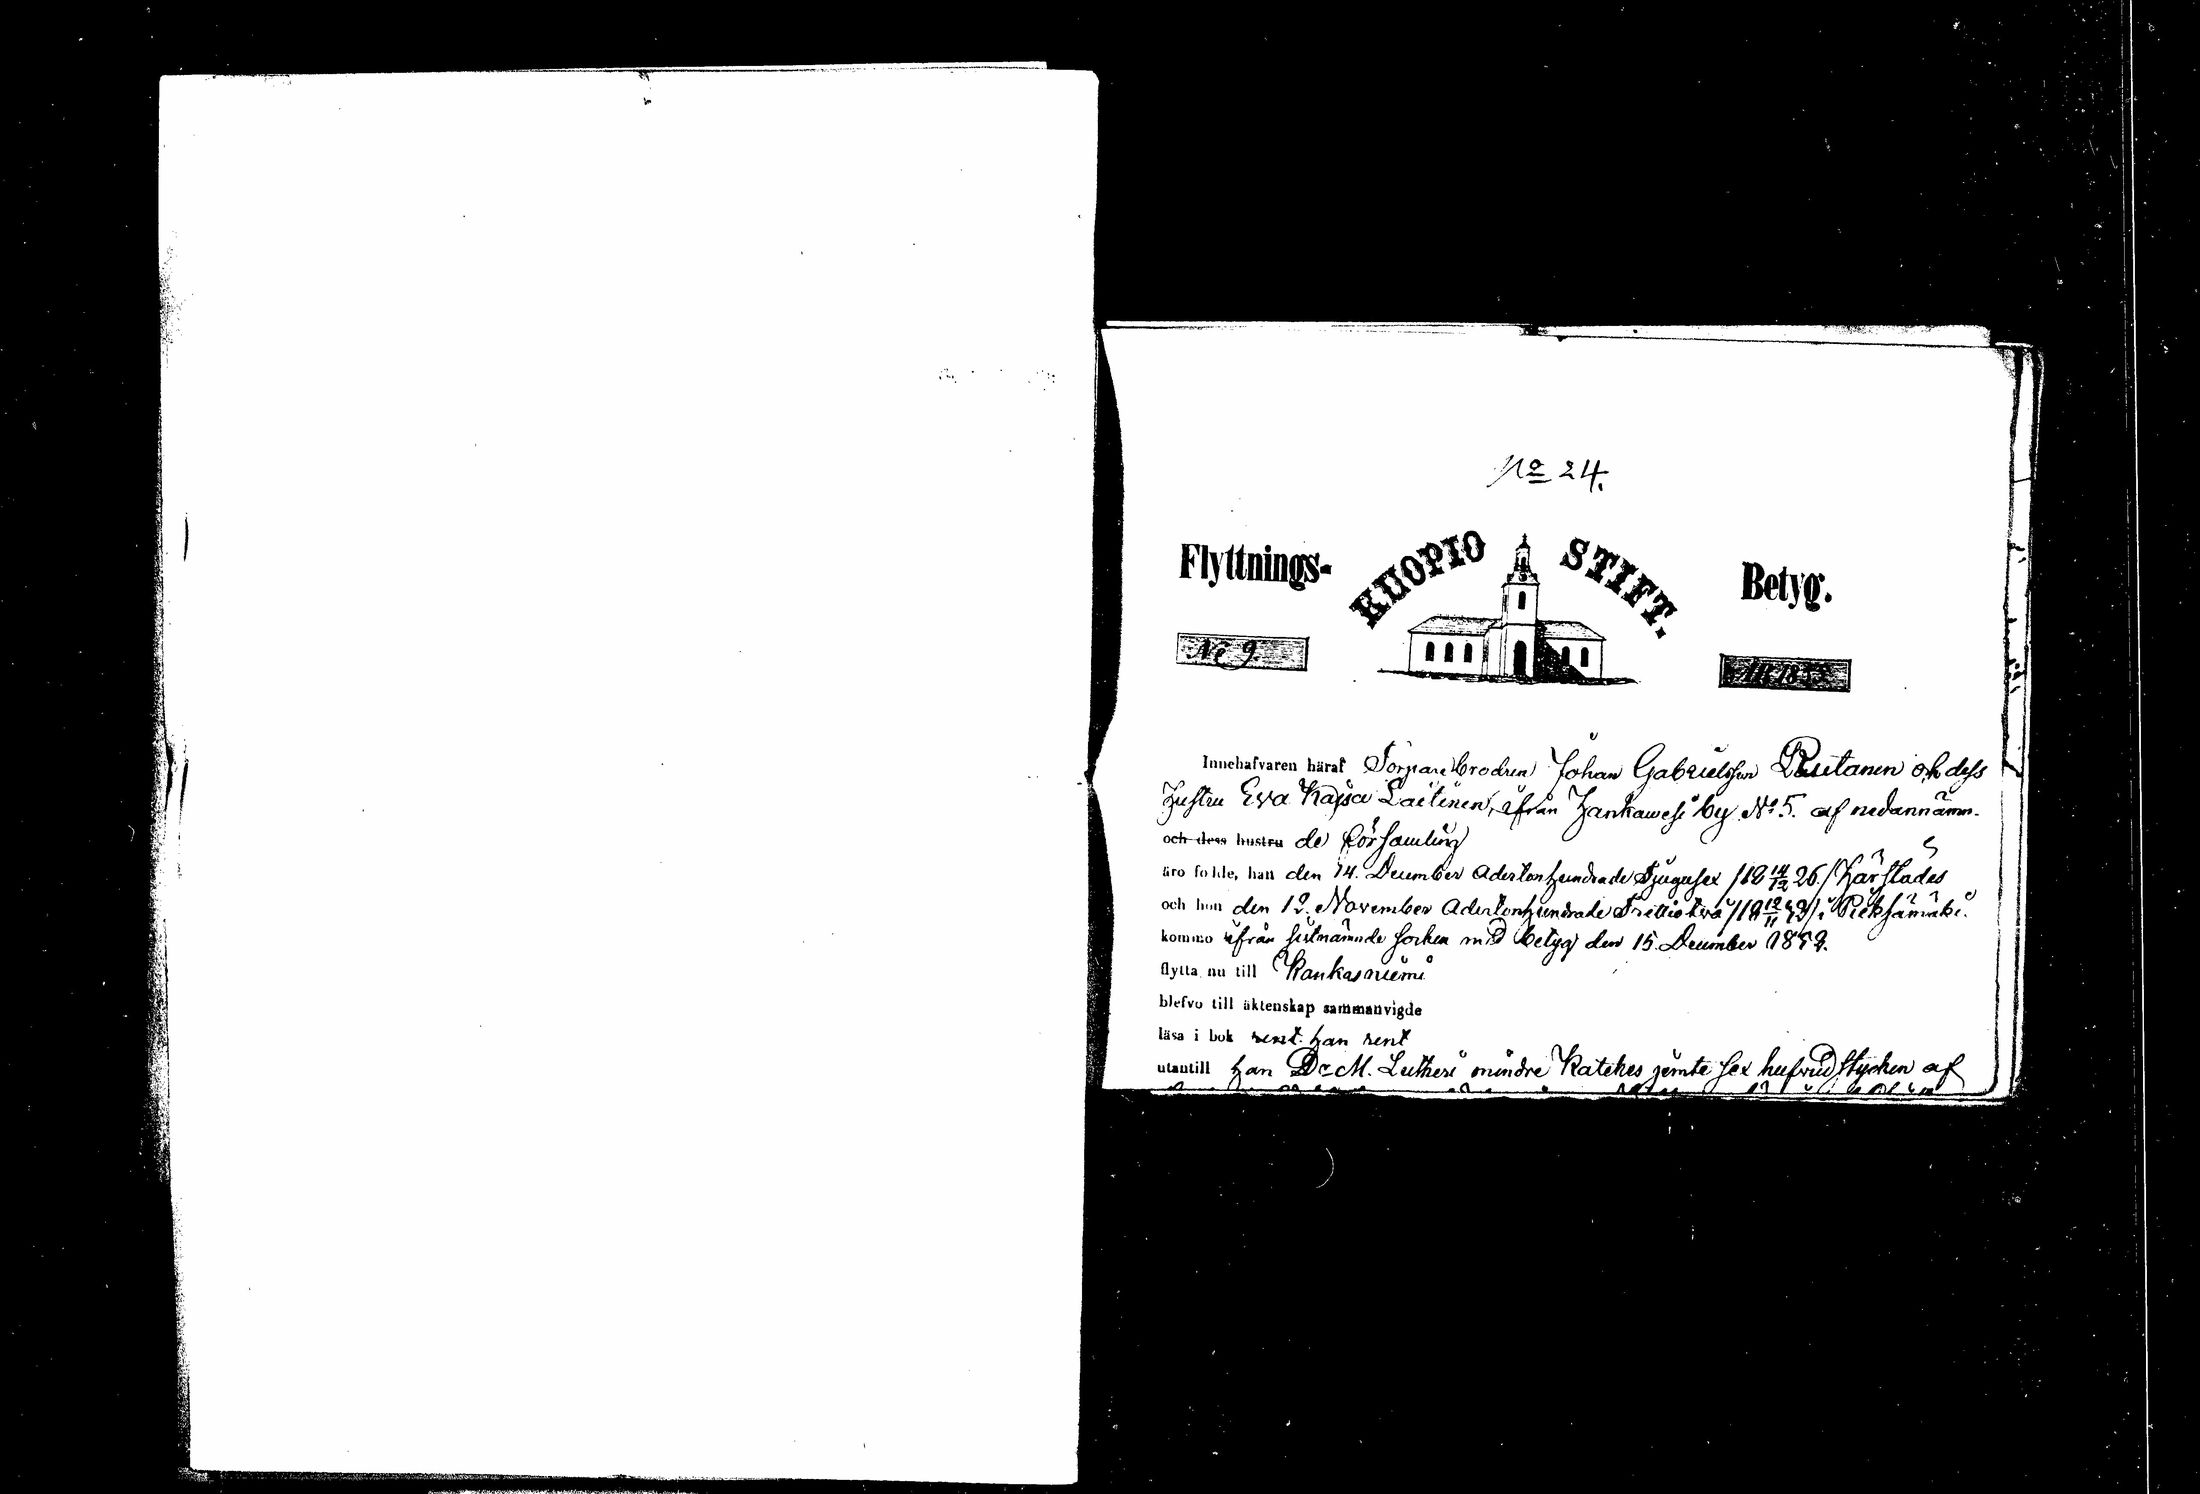 No 24.
Flyttnings- KUOPIO STIFT. Betyg.
No 9.
Innehafvaren häraf Torpare brodren Johan Gabrielsson Pautanen och dess
hustru Eva Kajsa Laitinen, ifrån Hankavesi by No 5. af nedannämn-
och dess hustru de församling
äro födde, han den 14. December Adertonhundrade Tjugusex /18 14/12 26./ härstädes
och hon den 12. November Adertonhundrade Trettiotvå /18 12/11 32/ i Pieksämäki.
kommo ifrån sistnämnde socken med betyg den 15. December 1852.
flytta nu till Kankasniemi
blefvo till äktenskap sammanvigde
läsa i bok rent han rent
utantill han Dr M. Lutheri mindre Katekes jemte sex hufvudstycken af